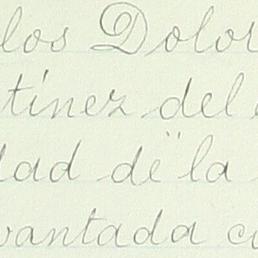 los Dolor
tinez del
dad de la
vantada co